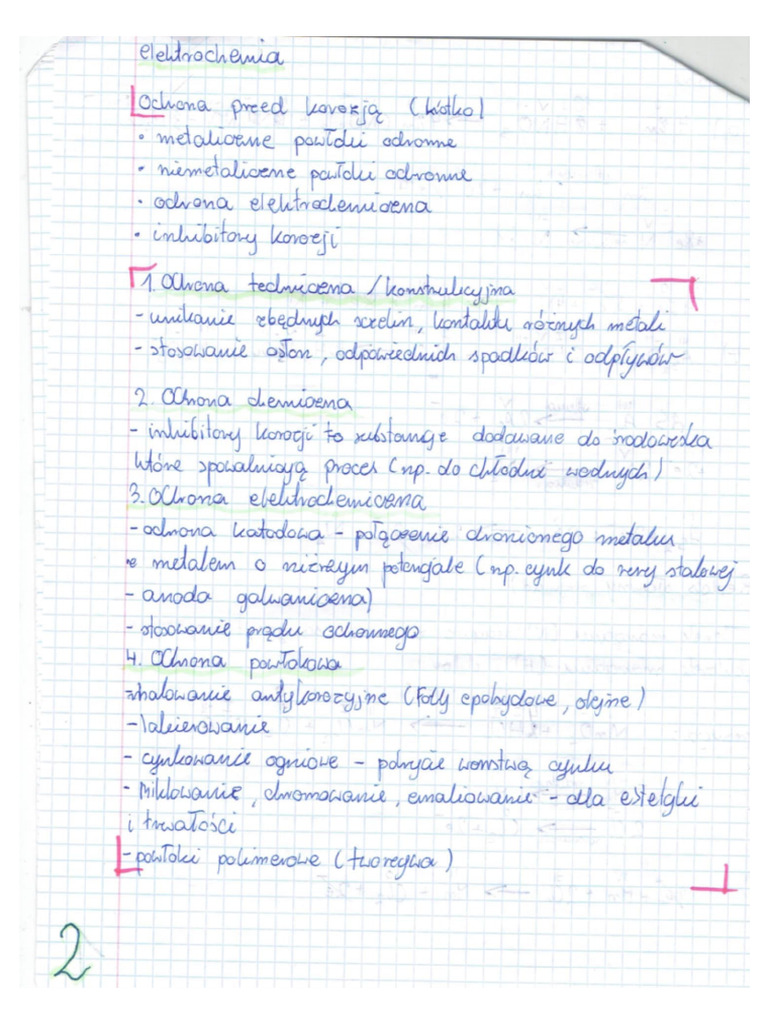 elektrochemia
Ochrona przed korozją (krótko)
• metaliczne powłoki ochronne
• niemetaliczne powłoki ochronne
• ochrona elektrochemiczna
• inhibitory korozji
1. Ochrona techniczna / konstrukcyjna
- unikanie zbędnych szczelin, kontaktu różnych metali
- stosowanie osłon, odpowiednich spadków i odpływów
2. Ochrona chemiczna
- inhibitory korozji to substancje dodawane do środowiska
które spowalniają proces (np. do chłodni wodnych)
3. Ochrona elektrochemiczna
- ochrona katodowa - połączenie chronionego metalu
z metalem o niższym potencjale (np. cynk do rury stalowej
- anoda galwaniczna)
- stosowanie prądu ochronnego
4. Ochrona powłokowa
malowanie antykorozyjne (farby epoksydowe, olejne)
- lakierowanie
- cynkowanie ogniowe - pokrycie warstwą cynku
- niklowanie, chromowanie, emaliowanie - dla estetyki
i trwałości
- powłoki polimerowe (tworzywa)
2